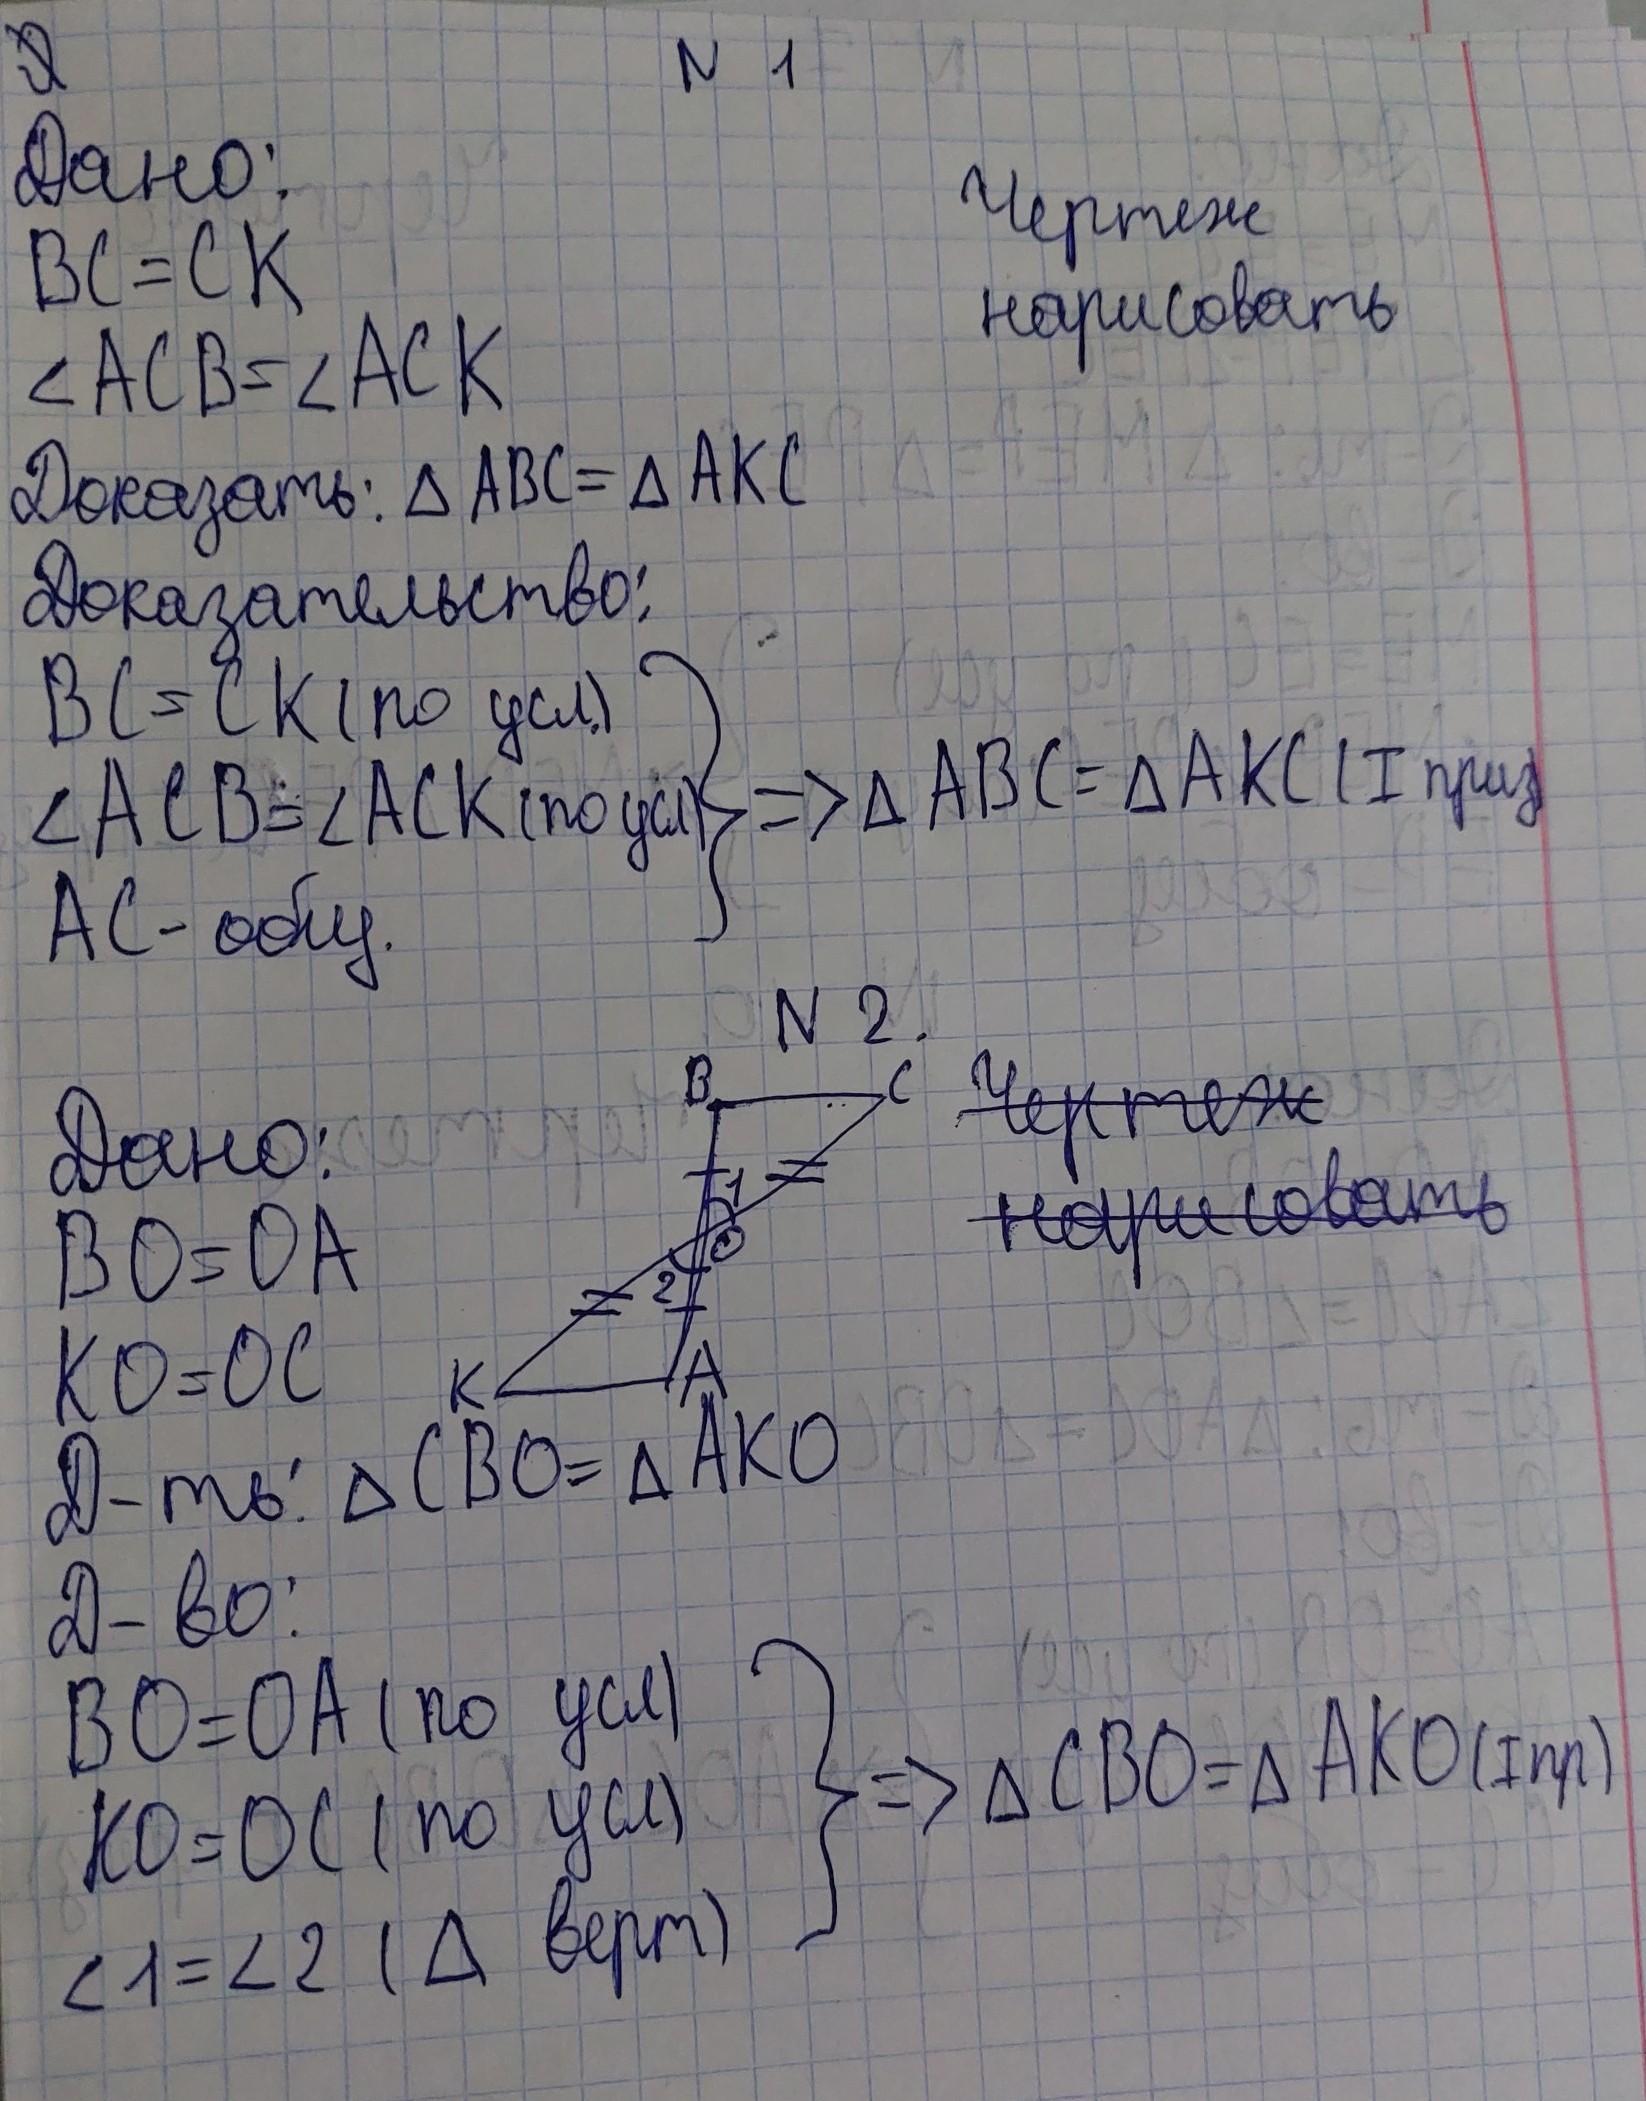 N 1
Дано:
Чертеж
BC=CK
нарисовать
<ACB=<ACK
Доказать: △ ABC=△ AKC
Доказательство:
BC=CK(по усл.)
<ACB=<ACK(по усл) => △ ABC=△ AKC (I приз
AC- общ.
N 2.
B C
Чертеж
Дано:
1
нарисовать
BO=OA
O
2
KO=OC
K A
Д-ть: △ CBO=△ AKO
Д-во:
BO=OA(по усл)
KO=OC(по усл) => △ CBO=△ AKO(I пр)
<1=<2 (△ верт)